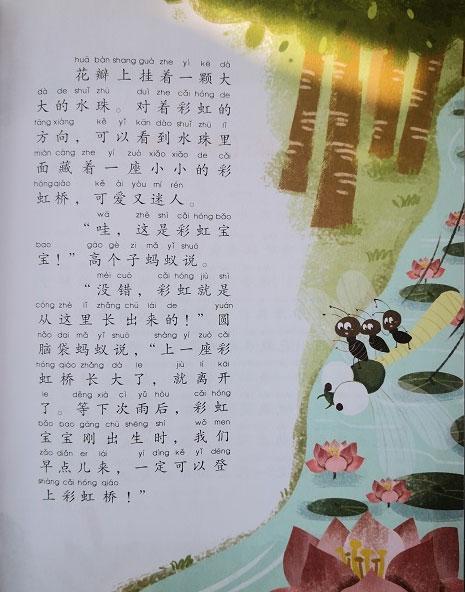 huā bàn shang guà zhe yì kē dà
花瓣上挂着一颗大
dà de shuǐ zhū duì zhe cǎi hóng de
大的水珠。对着彩虹的
fāng xiàng kě yǐ kàn dào shuǐ zhū lǐ
方向，可以看到水珠里
miàn cáng zhe yí zuò xiǎo xiǎo de cǎi
面藏着一座小小的彩
hóng qiáo kě ài yòu mí rén
虹桥，可爱又迷人。
wā zhè shì cǎi hóng bǎo
“哇，这是彩虹宝
bao gāo gè zi mǎ yǐ shuō
宝！”高个子蚂蚁说。
méi cuò cǎi hóng jiù shì
“没错，彩虹就是
cóng zhè lǐ zhǎng chū lái de yuán
从这里长出来的！”圆
nǎo dai mǎ yǐ shuō shàng yí zuò cǎi
脑袋蚂蚁说，“上一座彩
hóng qiáo zhǎng dà le jiù lí kāi
虹桥长大了，就离开
le děng xià cì yǔ hòu cǎi hóng
了。等下次雨后，彩虹
bǎo bao gāng chū shēng shí wǒ men
宝宝刚出生时，我们
zǎo diǎn er lái yí dìng kě yǐ dēng
早点儿来，一定可以登
shàng cǎi hóng qiáo
上彩虹桥！”